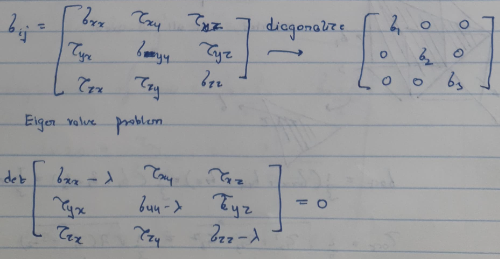 σij = [ σxx τxy τxz ; τyx σyy τyz ; τzx τzy σzz ] diagonalize → [ σ1 0 0 ; 0 σ2 0 ; 0 0 σ3 ]
Eigen value problem
det [ σxx - λ τxy τxz ; τyx σyy - λ τyz ; τzx τzy σzz - λ ] = 0